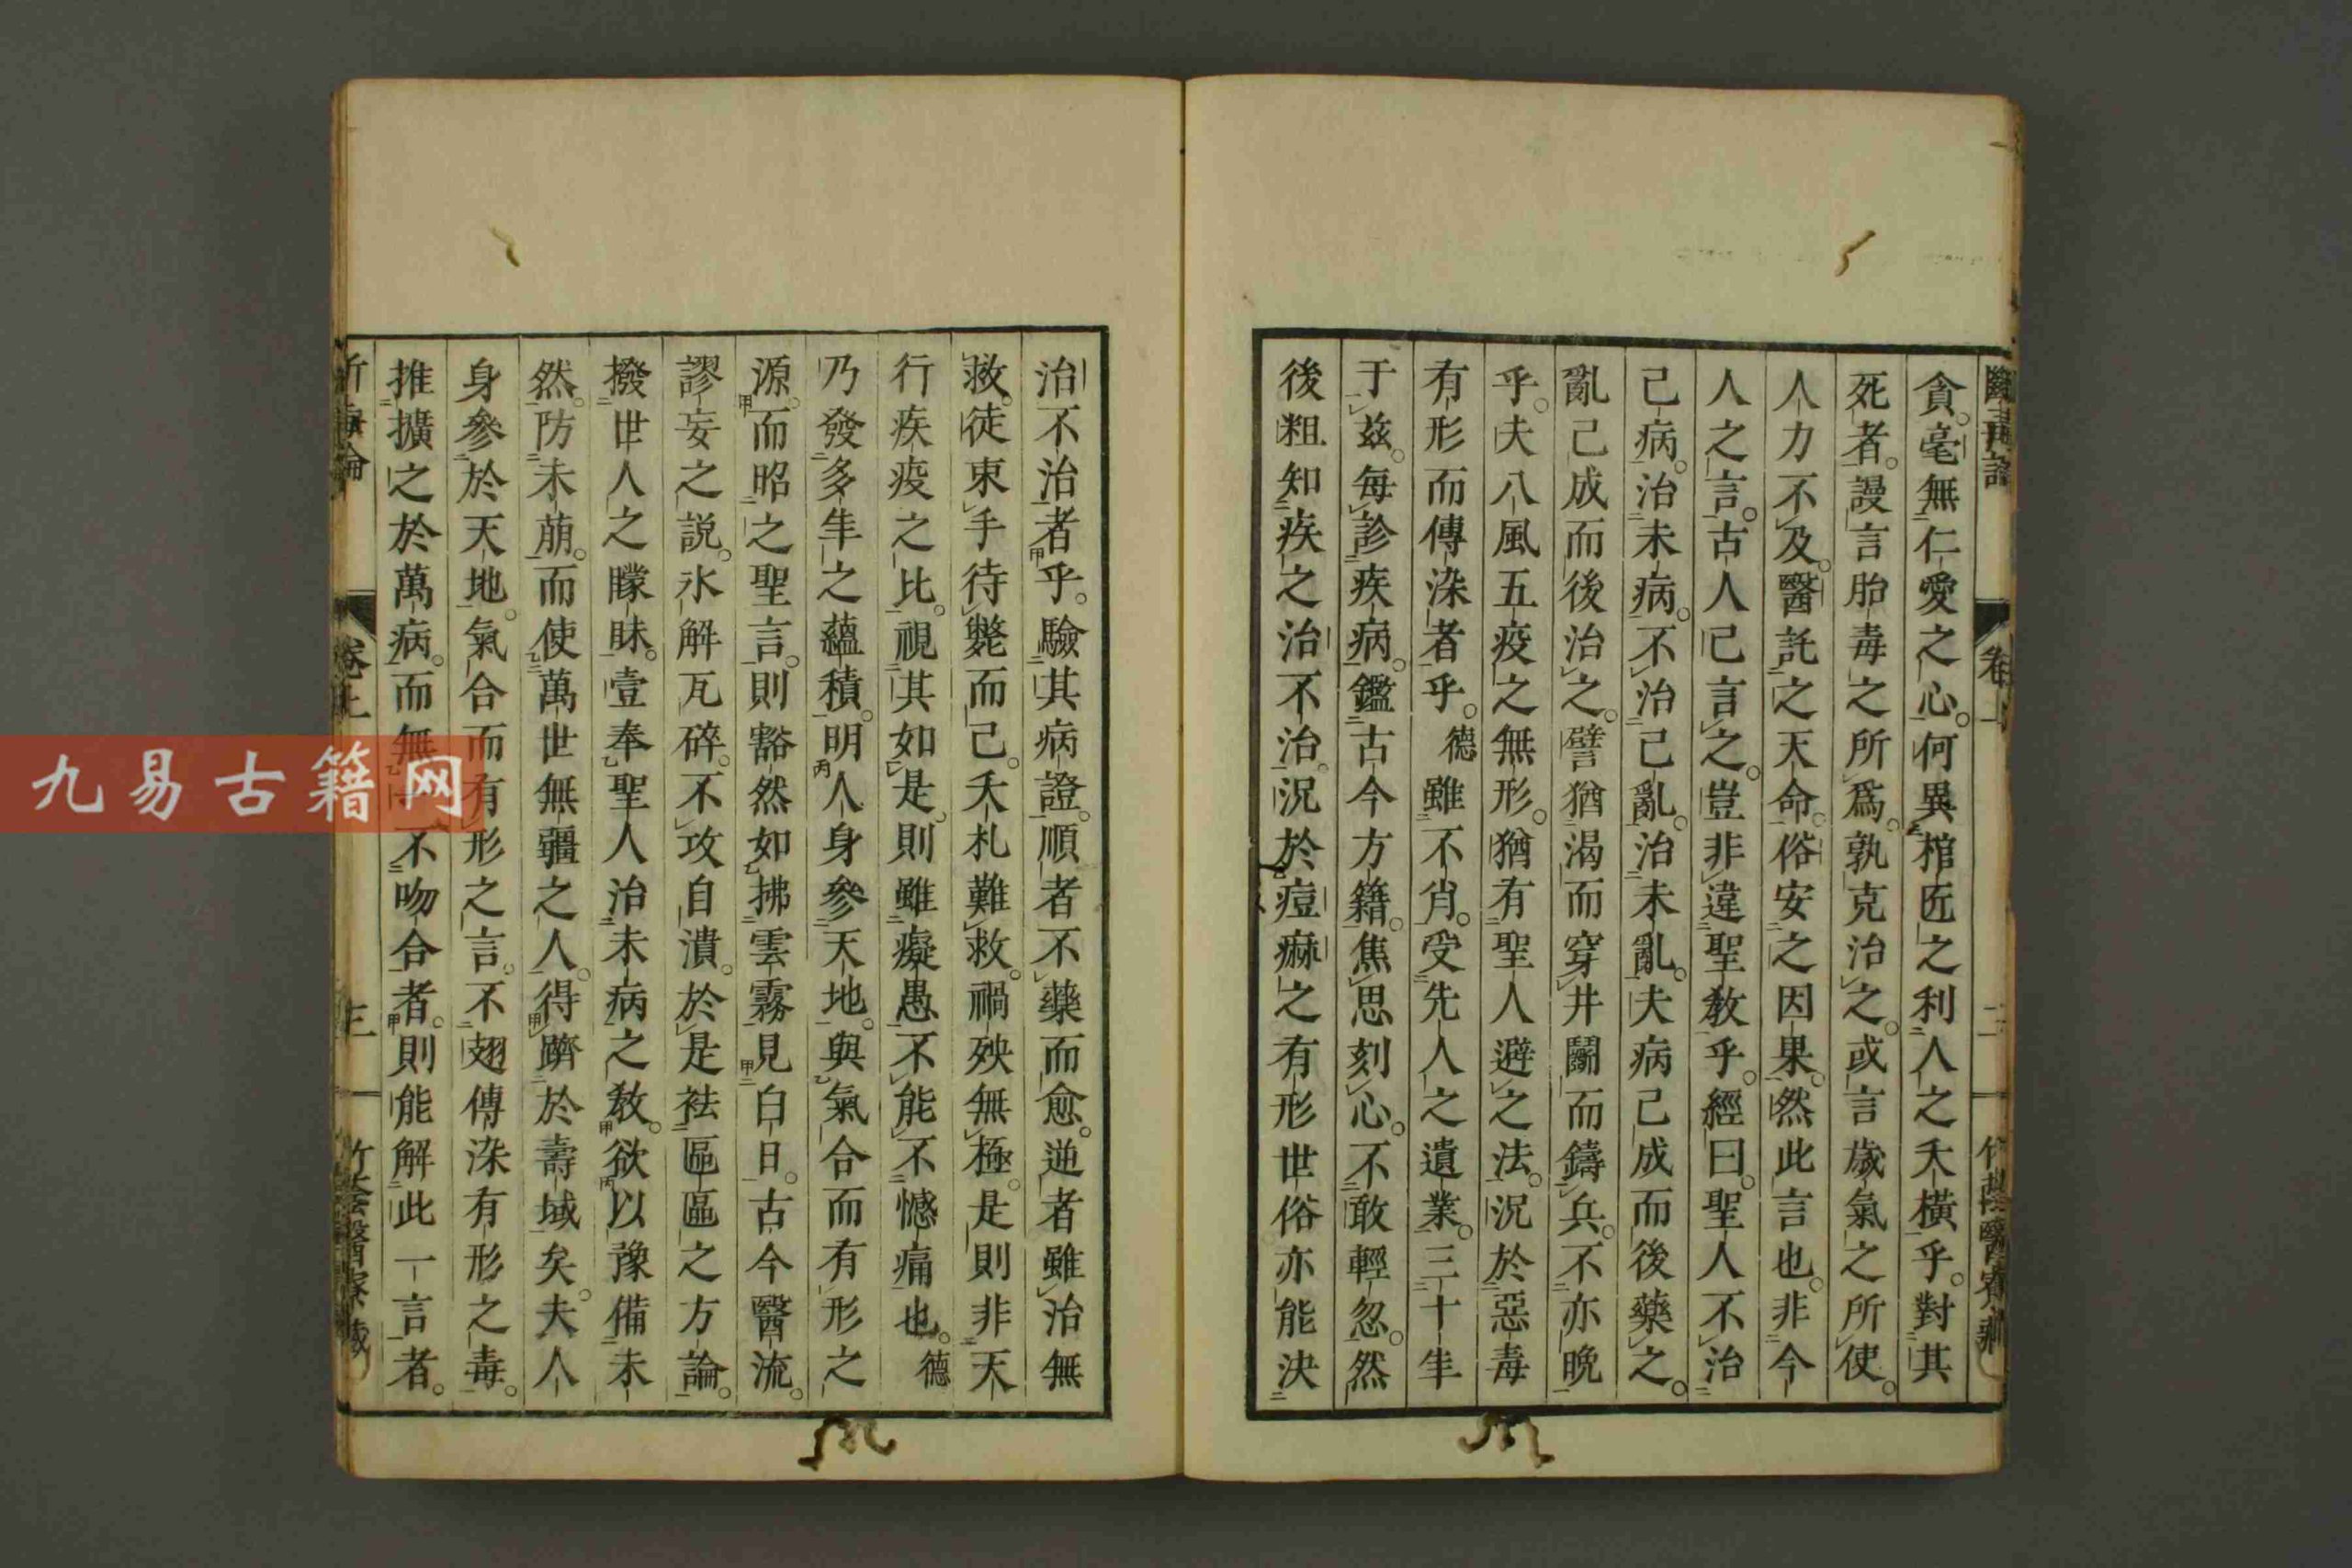 貪。毫無仁愛之心。何異棺匠之利人之夭橫乎。對其
死者。謾言胎毒之所爲。孰克治之。或言歲氣之所使。
人力不及。醫託之天命。俗安之因果。然此言也。非今
人之言。古人已言之。豈非違聖教乎。經曰。聖人不治
已病。治未病。不治已亂。治未亂。夫病已成而後藥之。
亂已成而後治之。譬猶渴而穿井鬭而鑄兵。不亦晩
乎。夫八風五疫之無形。猶有聖人避之法。況於惡毒
有形而傳染者乎。德雖不肖。受先人之遺業。三十年
于茲。每診疾病。鑑古今方籍。焦思刻心。不敢輕忽。然
後粗知疾之治不治。況於痘痳之有形世俗亦能決
卷上
二
治不治者乎。驗其病證。順者不藥而愈。逆者雖治無
救。徒東手待斃而已。夭札難救。禍殃無極。是則非天
行疾疫之比。視其如是。則雖癡愚不能不憾痛也。德
乃發多年之蘊積。明人身參天地。與氣合而有形之
源。而昭之聖言。則豁然如拂雲霧見白日。古今醫流。
謬妄之説。氷解瓦碎。不攻自潰。於是袪區區之方論。
撥世人之矇眛。壹奉聖人治未病之教。欲以豫備未
然。防未萠。而使萬世無疆之人。得躋於壽域矣。夫人
身參於天地。氣合而有形之言。不翅傳染有形之毒。
推擴之於萬病。而無不吻合者。則能解此一言者。
卷上
三
竹蔭醫寮藏
九易古籍网